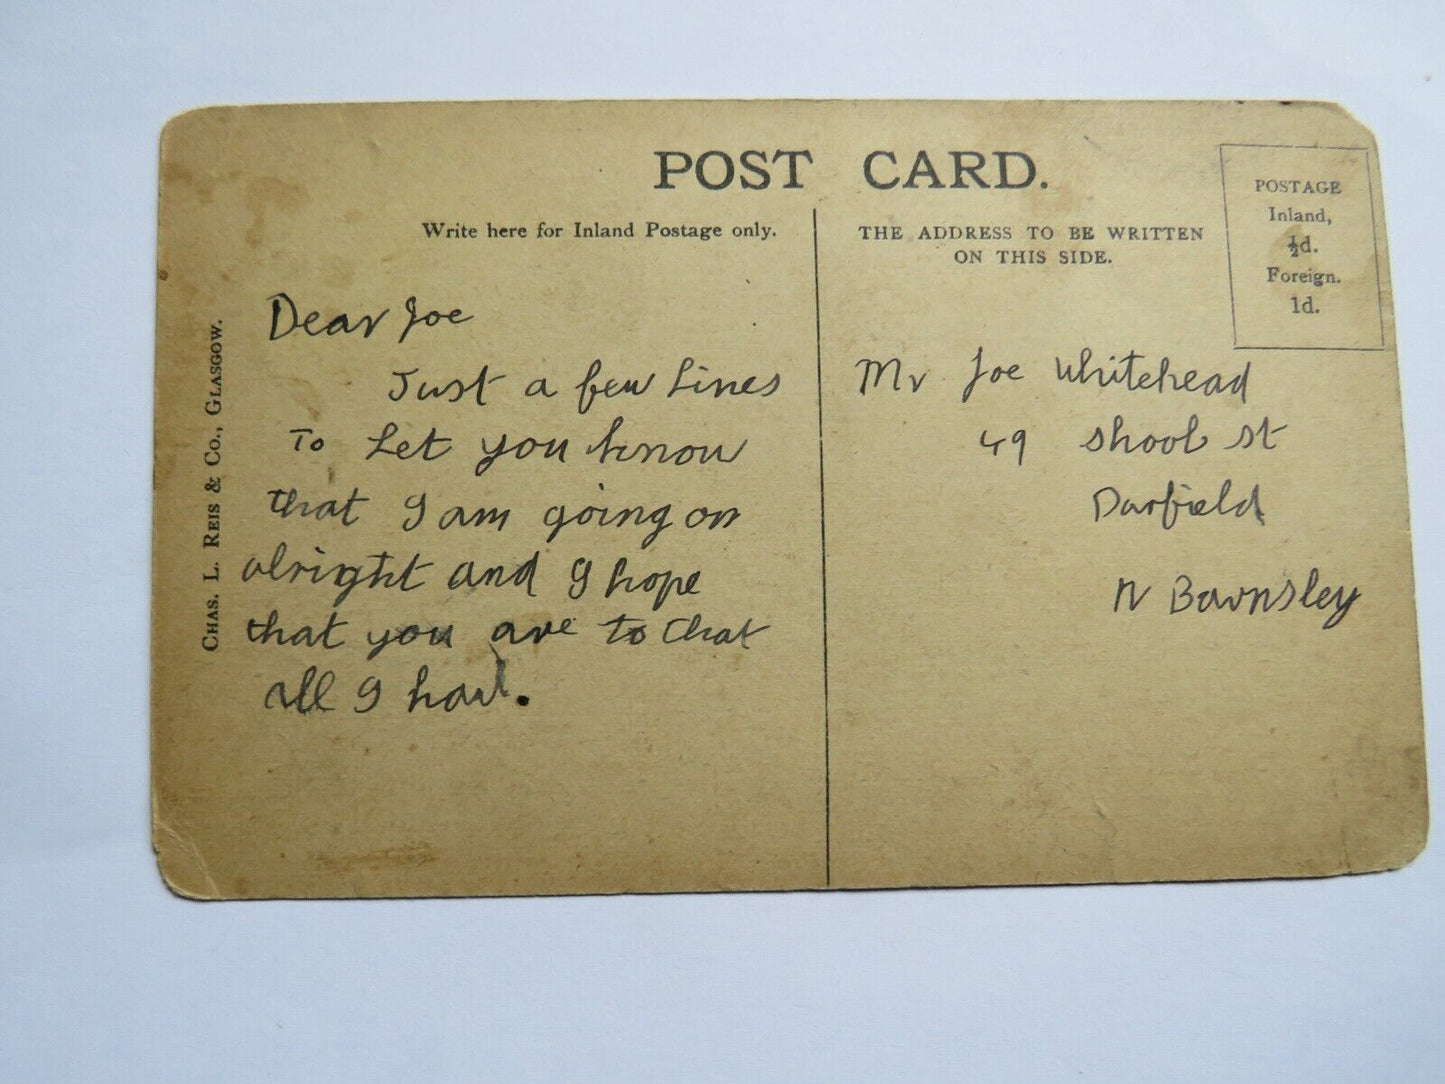 POST CARD.
Write here for Inland Postage only.
THE ADDRESS TO BE WRITTEN
ON THIS SIDE.
POSTAGE
Inland,
½d.
Foreign.
1d.
CHAS. L. REIS & CO., GLASGOW.
Dear Joe
Just a few Lines
To Let you know
that I am going on
alright and I hope
that you are to that
all I
Mr Joe Whitehead
49 shool st
Darfield
N Barnsley